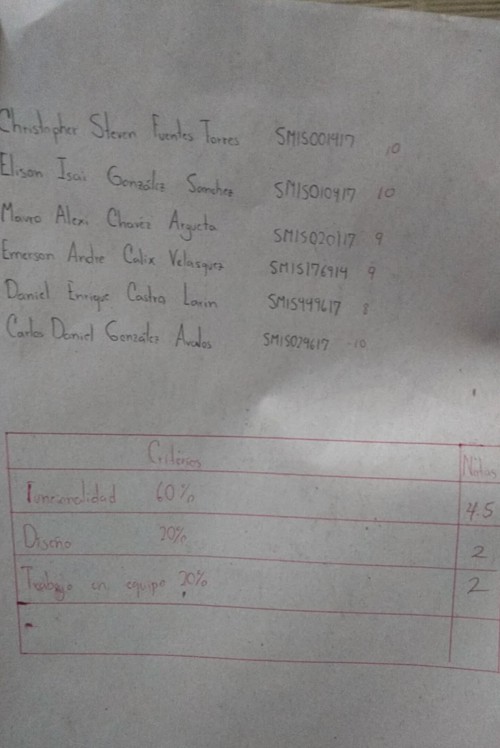 Christopher Steven Fuentes Torres SMIS001417 10
Elison Isai González Sanchez SMIS010417 10
Mauro Alexi Chavéz Argueta SMIS020117 9
Emerson Andre Calix Velasquez SMIS176914 9
Daniel Enrique Castro Larin SMIS499617 8
Carlos Daniel González Avalos SMIS029617 10
Criterios Notas
Funcionalidad 60% 4.5
Diseño 20% 2
Trabajo en equipo 20% 2
-